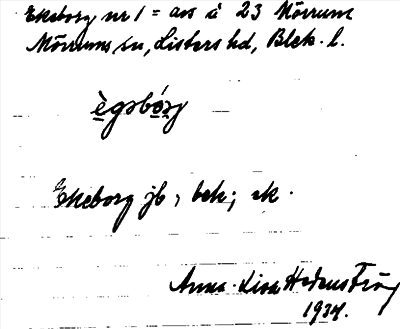 Ekeborg nr 1 = avs å 23 Mörrum
Mörrums sn, Listers hd, Blek. l.
ègsbórg
Ekeborg jb, bek; ek.
Anna-Lisa Hedenström
1934.